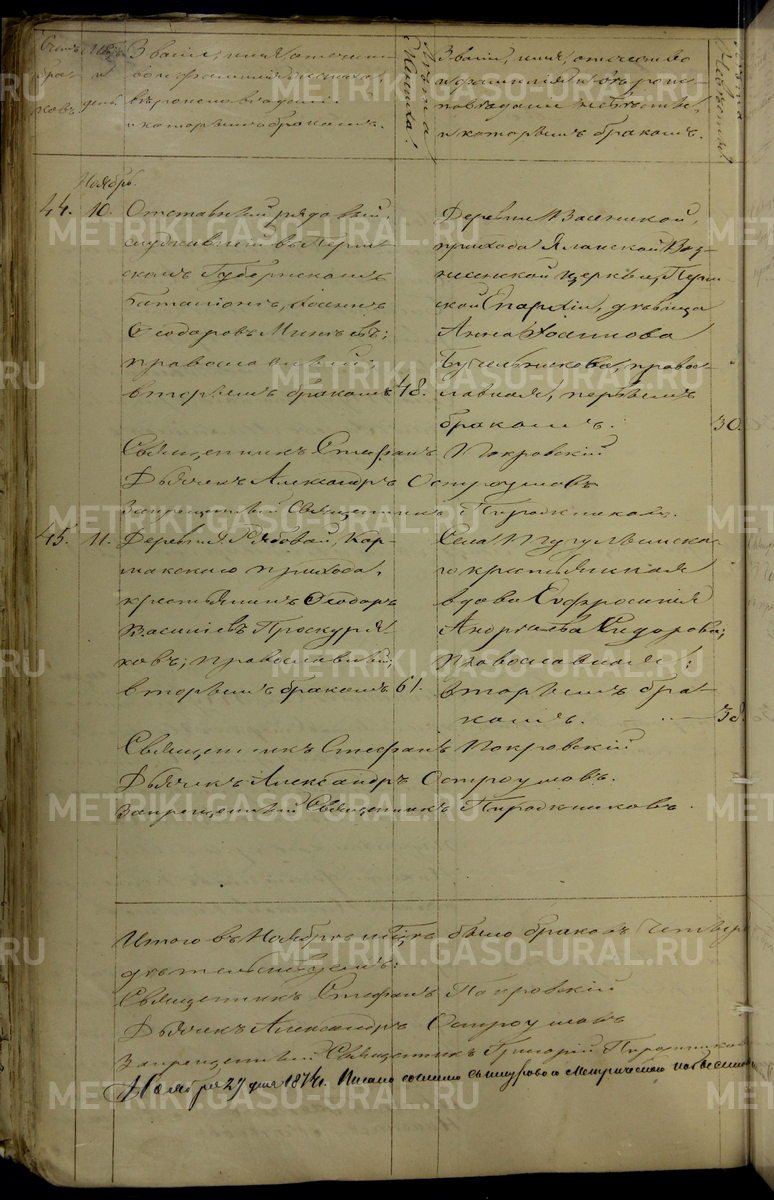 Счетъ браковъ
Мѣсяцъ и день
Званіе, имя, отчество
фамилія жениха,
вѣроисповѣданіе
и которымъ бракомъ.
Лѣта жениха!
Званіе, имя, отчество
и фамилія
невѣсты,
и которымъ бракомъ.
Лѣта невѣсты!
Ноябрь.
44. 10. Отставный рядовый,
служившій въ Перм-
скомъ Губернскомъ
баталіонѣ, Іоаннъ
Ѳеодоровъ
православный,
вторымъ бракомъ 48.
Деревни
прихода Яланской Воз-
несенской церкви, Перм-
ской Епархіи, дѣвица
Анна
право-
славная, первымъ
бракомъ. 30.
Священникъ Стефанъ Покровскій
Дьячекъ Александръ Остроумовъ
Запрещенный Священникъ Пирожниковъ.
45. 11. Деревни Рябовой, Кар-
макскаго прихода,
крестьянинъ Ѳеодоръ
Василіевъ Проскуря-
ковъ; православный,
вторымъ бракомъ 61.
Села Тугулымска-
го крестьянская
вдова Евфросинія
Андреева Сидорова;
православная;
вторымъ бра-
комъ. 38.
Священникъ Стефанъ Покровскій
Дьячекъ Александръ Остроумовъ.
Запрещенный Священникъ Пирожниковъ.
Итого въ Ноябрѣ мѣсяцѣ было браковъ
Священникъ Стефанъ Покровскій
Дьячекъ Александръ Остроумовъ
Запрещенный Священникъ Григорій
Ноября 29 дня 1874 г.
METRIKI.GASO-URAL.RU